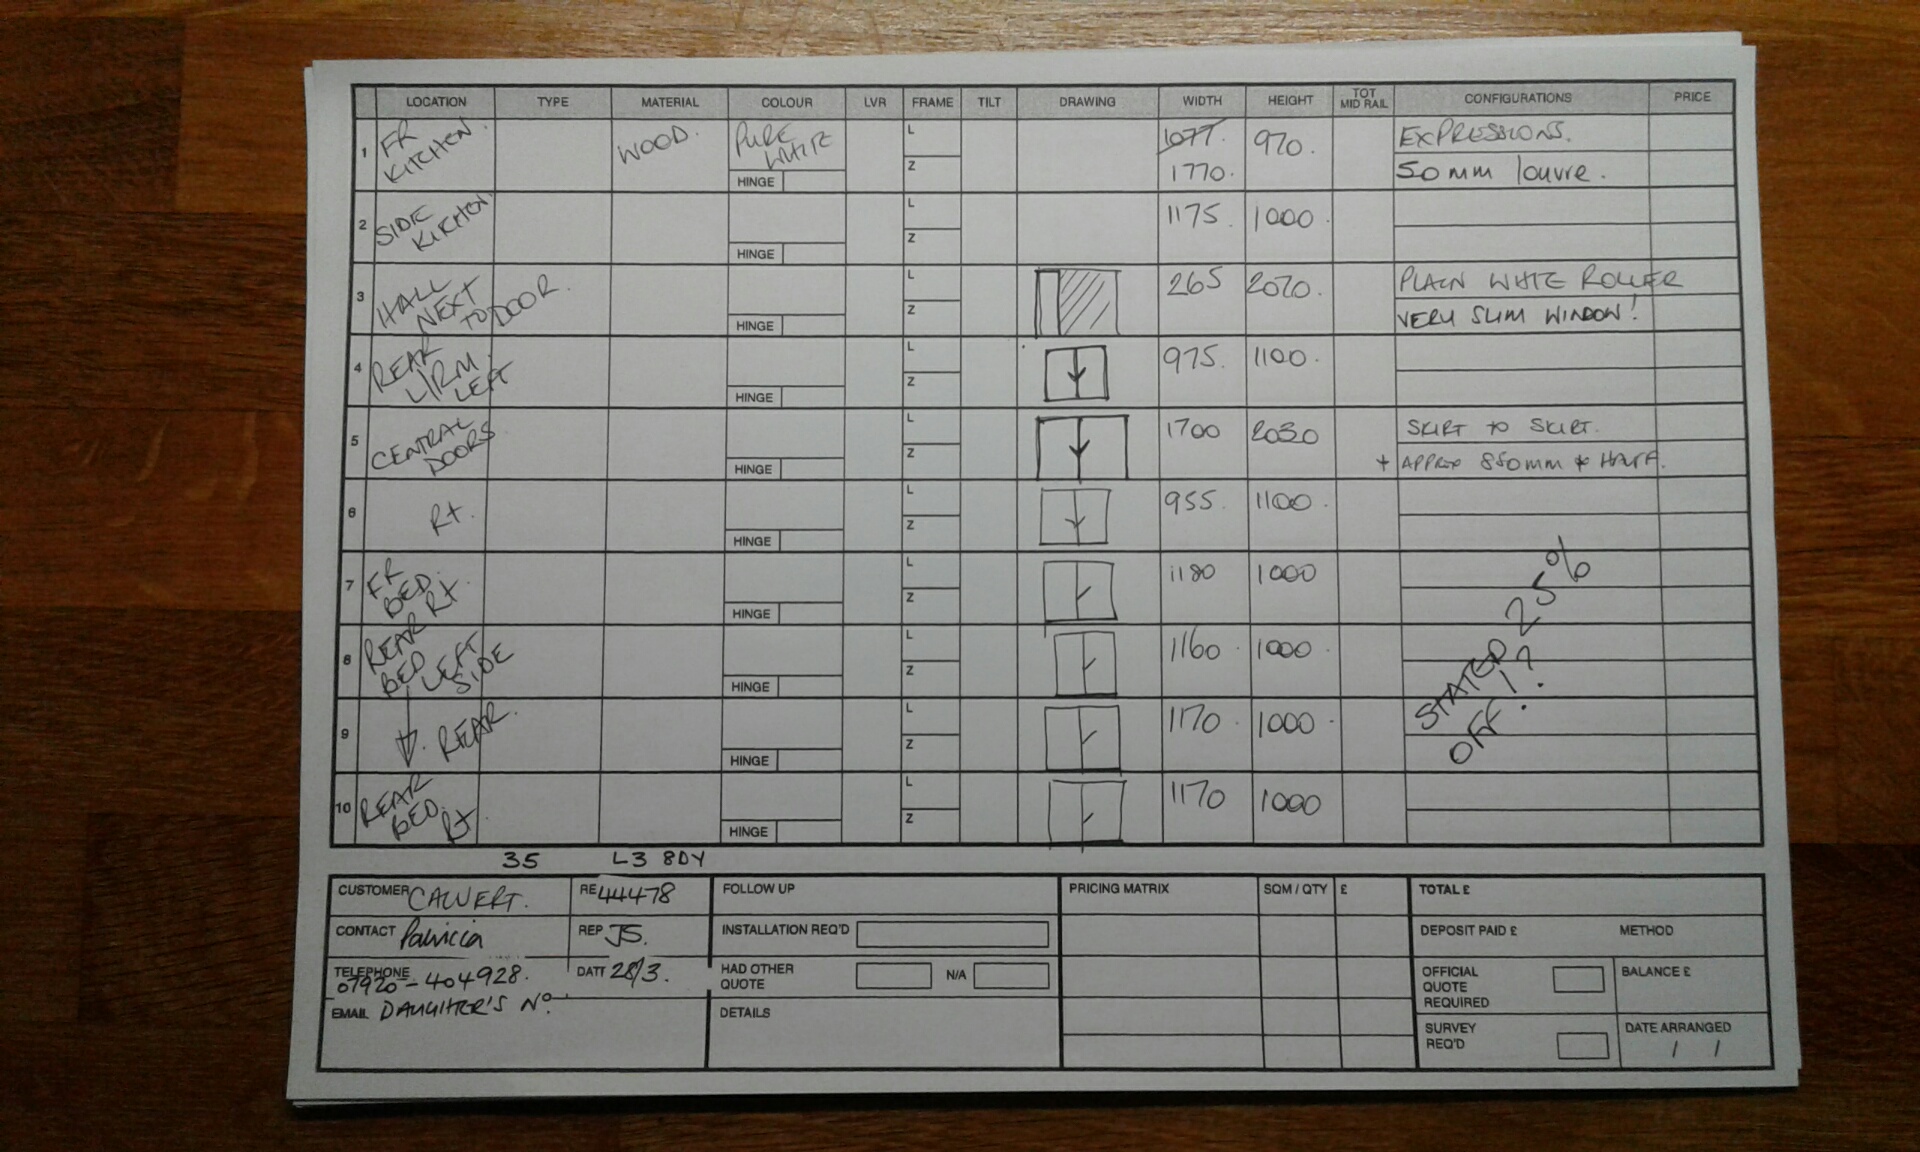 LOCATION TYPE MATERIAL COLOUR LVR FRAME TILT DRAWING WIDTH HEIGHT TOT MID RAIL CONFIGURATIONS PRICE
1 FR KITCHEN. WOOD. PURE WHITE HINGE L Z 1077. 1770. 970. EXPRESSIONS.
50mm louvre.
2 SIDE KITCHEN. HINGE L Z 1175. 1000.
3 HALL NEXT TO DOOR. HINGE L Z 265 2020. PLAIN WHITE ROLLER
VERY SLIM WINDOW!
4 REAR L/RM LEFT HINGE L Z 975. 1100.
5 CENTRAL DOORS HINGE L Z 1700 2030 SKIRT TO SKIRT.
+ APPROX 850mm * HALF.
6 Rt. HINGE L Z 955. 1100.
7 FR BED. HINGE L Z 1180 1000
8 REAR Rt. BED LEFT SIDE HINGE L Z 1160. 1000.
9 REAR. HINGE L Z 1170. 1000.
10 REAR BED. Rt HINGE L Z 1170 1000
STATED 25%
OFF!?
35 L3 8DY
CUSTOMER CALVERT. 44478 FOLLOW UP PRICING MATRIX SQM / QTY £ TOTAL £
CONTACT Patricia REP JS. INSTALLATION REQ'D DEPOSIT PAID £ METHOD
TELEPHONE 07920-404928. 28/3. HAD OTHER QUOTE N/A OFFICIAL QUOTE REQUIRED BALANCE £
EMAIL DAUGHTER'S No. DETAILS SURVEY REQ'D DATE ARRANGED
/ /